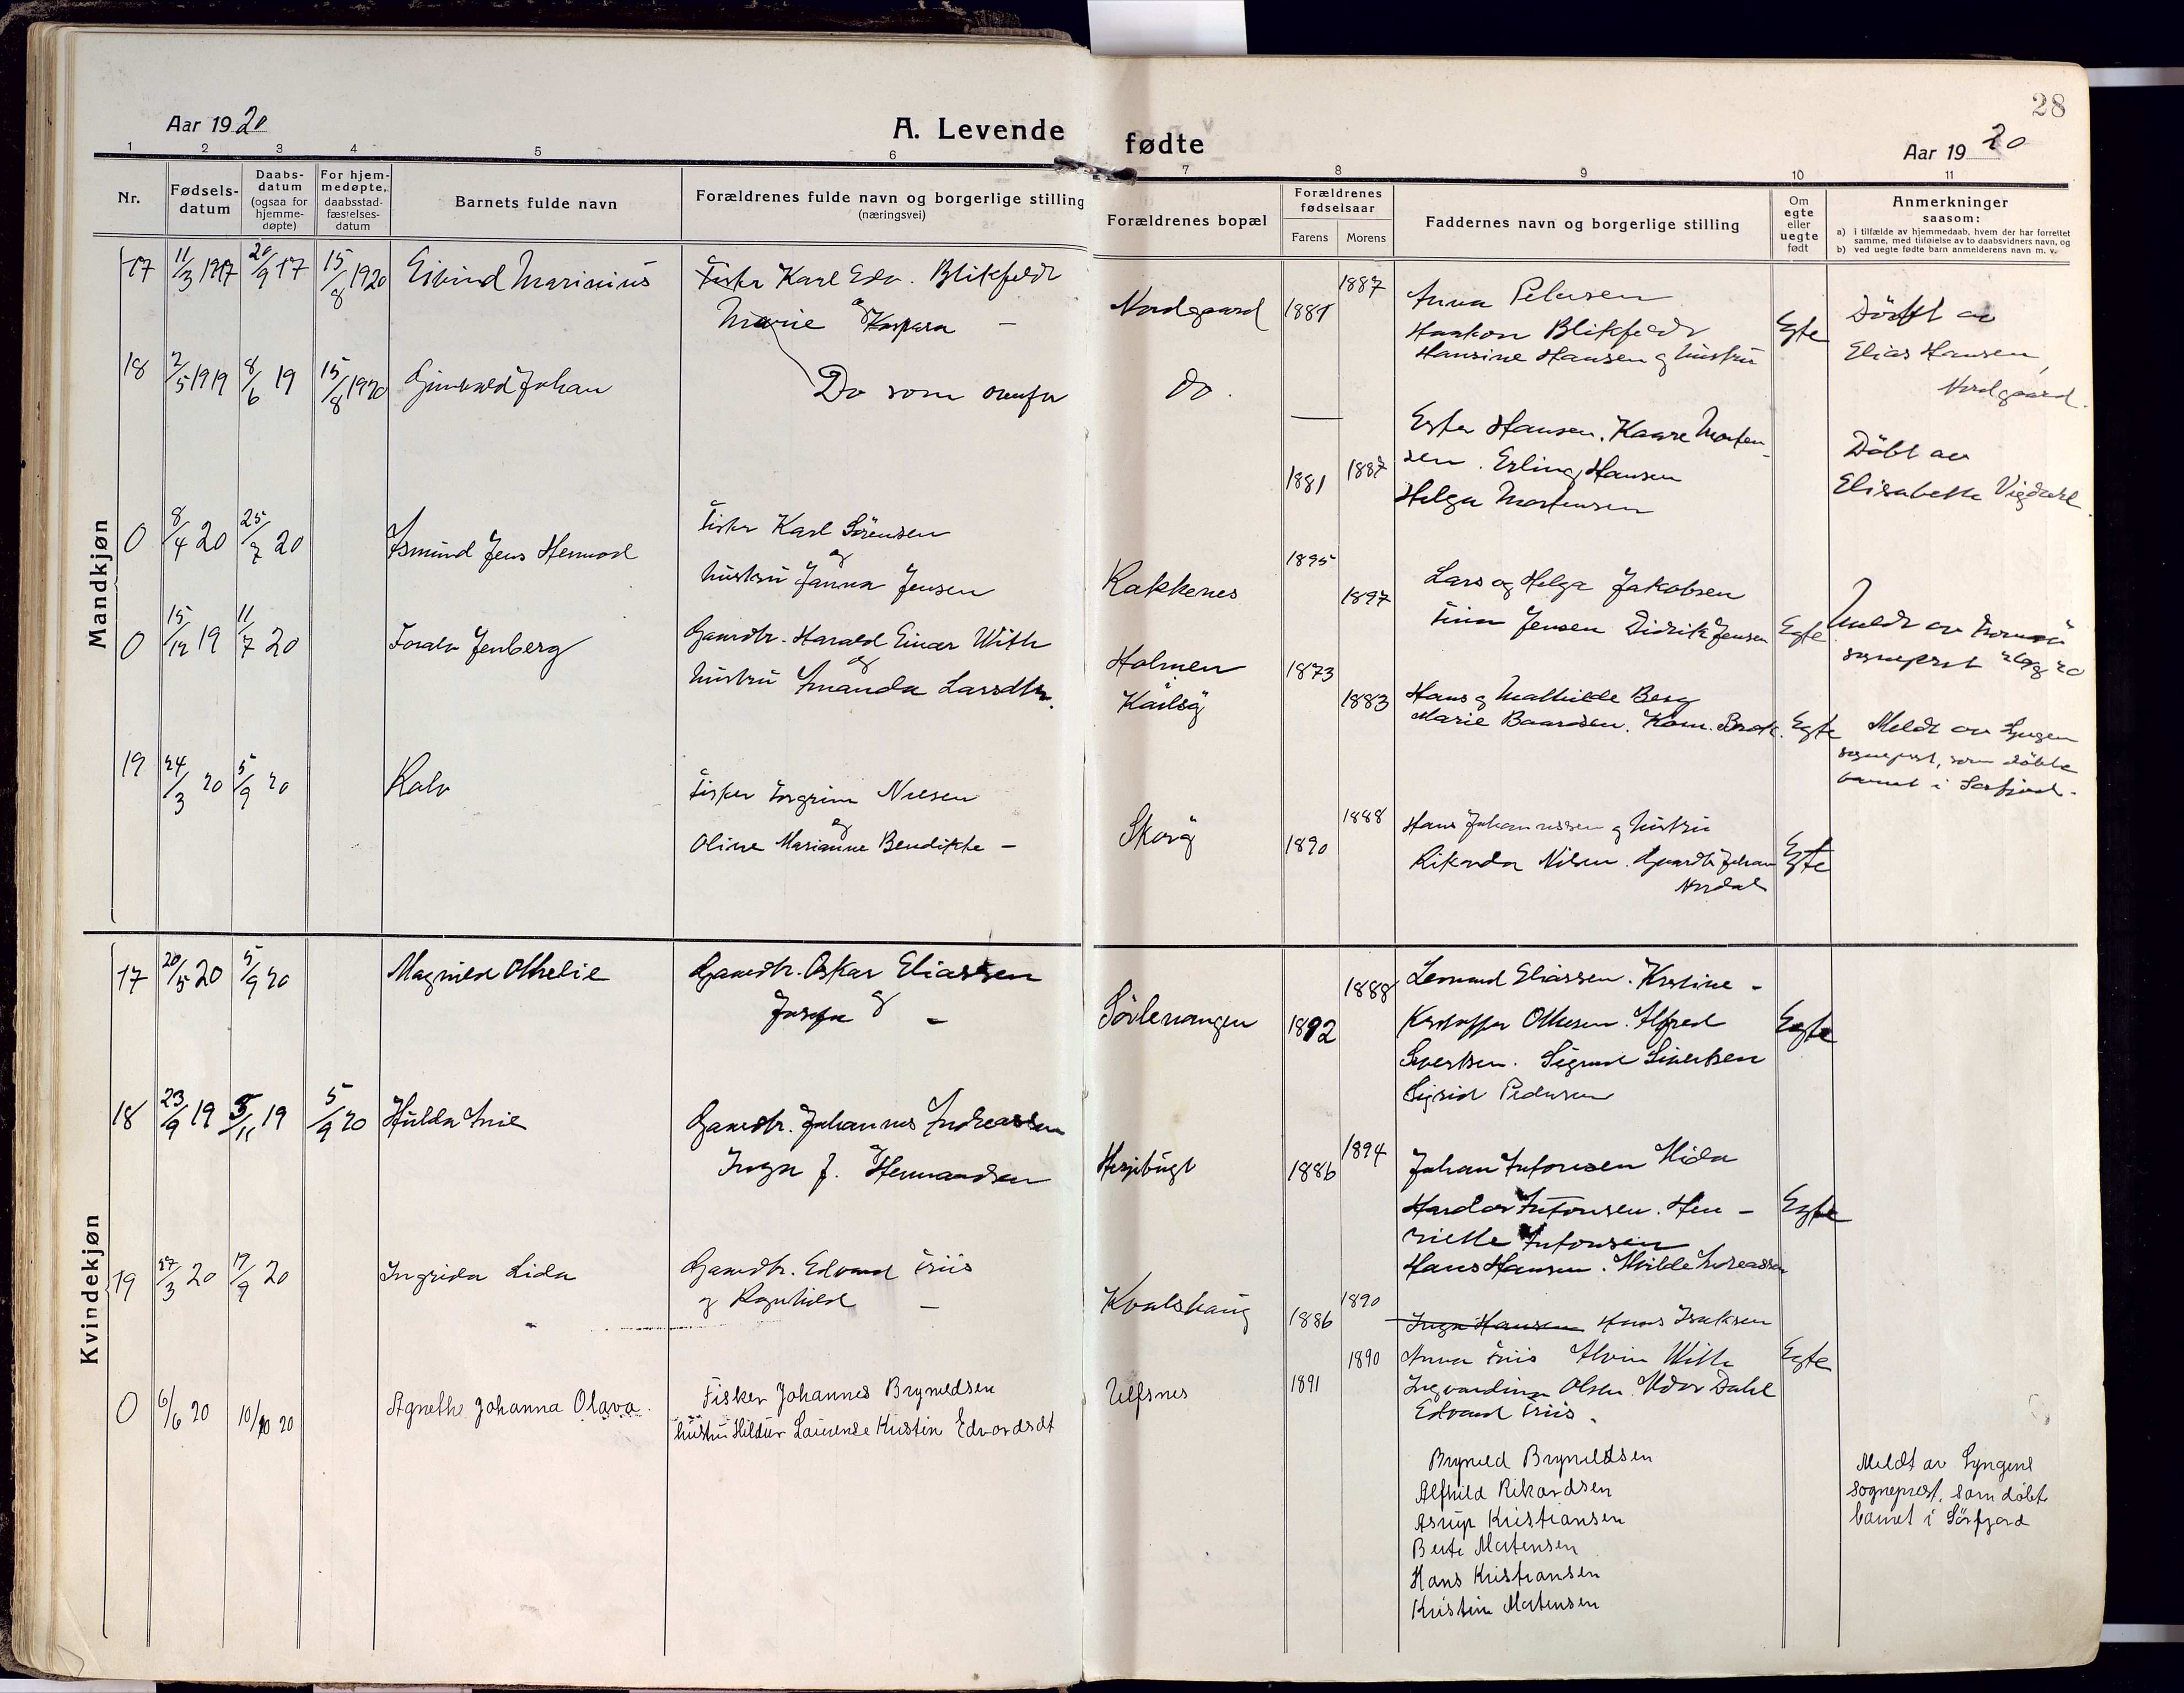 28
Aar 1920
A. Levende fødte
Aar 1920
1 2 3 4 5 6 7 8 9 10 11
Nr.
Fødsels-
datum
Daabs-
datum
(ogsaa for
hjemme-
døpte)
For hjem-
medøpte,
daabsstad-
fæstelses-
datum
Barnets fulde navn
Forældrenes fulde navn og borgerlige stilling
(næringsvei)
Forældrenes bopæl
Forældrenes
fødselsaar
Farens Morens
Faddernes navn og borgerlige stilling
Om
egte
eller
uegte
født
Anmerkninger
saasom:
a) i tilfælde av hjemmedaab, hvem der har forrettet
samme, med tilføielse av to daabsvidners navn, og
b) ved uegte fødte barn anmelderens navn m. v.
Mandkjøn
17 11/3 1917 20/9 17 15/8 1920 Eivind Marinius
Fisker Karl Edv. Blikfeldt
og
Marie Kaspara –
Nordgaard 1881 1887
Anna Petersen
Haakon Blikfeldt
Hansine Hansen og hustru
Egte
Døbt av
Elias Hansen,
Nordgaard.
18 2/5 1919 8/6 19 15/8 1920 Johan
Do som ovenfor
do.
1881 1887
Ester Hansen. Kaare Morten-
sen. Erling Hansen
Helga Mortensen
Døbt av
Elisabeth Vigdahl.
0 8/4 20 25/7 20 Asmund Jens
Fisker Karl Sørensen
og
hustru Janna Jensen
Kakkenes 1895 1897
Lars og Helga Jakobsen
Jensen Didrik Jensen
Egte
Meldt av Tromsø
sogneprest
0 15/12 19 11/7 20 Toralv Jenberg
Gaardbr. Harald Einar With
og
hustru Amanda Larsdtr.
Holmen
Karlsø
1873 1883
Hans og Mathilde Berg
Marie Baardsen.
Egte
Meldt av Lyngen
sogneprest, som døbte
barnet i Sørfjord.
19 24/3 20 5/9 20 Rolv
Fisker Torgrim Nilsen
og
Oline Marianne Bendikte –
Skorø 1890 1888
Hans Johannessen og hustru
Rikarda Nilsen. Gaardbr. Johan
Nordal
Egte
Kvindekjøn
17 20/5 20 5/9 20 Magnild Othelie
Gaardbr. Oskar Eliassen
og
Josefa –
Sørlenangen 1892 1888
Lemund Eliassen. Kristine –
Kristoffer Othesen. Alfred
Sivertsen. Sigrund Sivertsen
Sigrid Pedersen
Egte
18 23/9 19 5/11 19 5/9 20 Hulda
Gaardbr. Johannes Andreassen
og
Inga J. Hermandsen
Hessjibugt 1886 1894
Johan Antonsen Hida
Antonsen. Hen-
riette Antonsen
Hans Hansen. Hvilde Andreassen
Egte
19 27/3 20 17/9 20 Ingrida Lida
Gaardbr. Edvard Friis
og Ragnhild –
Kvalshaug 1886 1890
Inga Hansen Hans Isaksen
1890 Anna Friis Alvin With
Ingvardina Olsen. Dahl
Edvard Friis.
Egte
0 6/6 20 10/10 20 Agnethe Johanna Olava.
Fisker Johannes Brynildsen
hustru Hildur Laurense Kristin Edvardsdt
Ulfsnes 1891
Brynild Brynildsen
Alfhild Rikardsen
Astrup Kristiansen
Berte Mortensen
Hans Kristiansen
Kristin Mortensen
Meldt av Lyngens
sogneprest, som døbte
barnet i Sørfjord